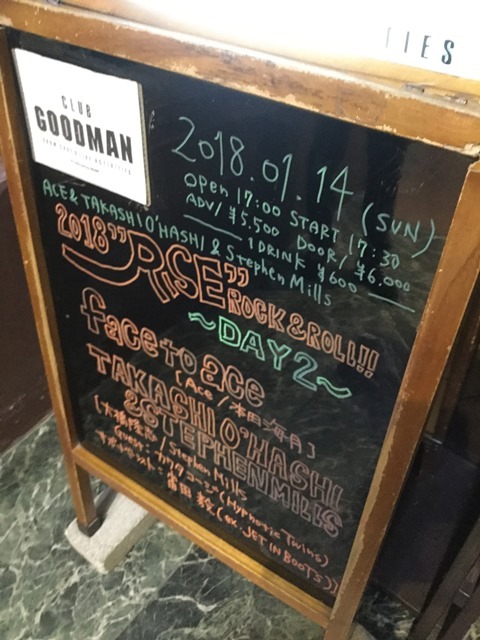 TIES
CLUB
GOODMAN
2018.01.14 (SUN)
OPEN 17:00 START 17:30
ADV/ ¥5,500 DOOR/ ¥6,000
1DRINK ¥600
ACE & TAKASHI O'HASHI & Stephen Mills
2018"RISE"ROCK&ROLL!!
~DAY2~
face to ace
[Ace / 本田海月]
TAKASHI O'HASHI
&STEPHENMILLS
[大橋隆志 / Stephen Mills
Guest: (Hypnotic Twins)
(ex. JET IN BOOTS)]